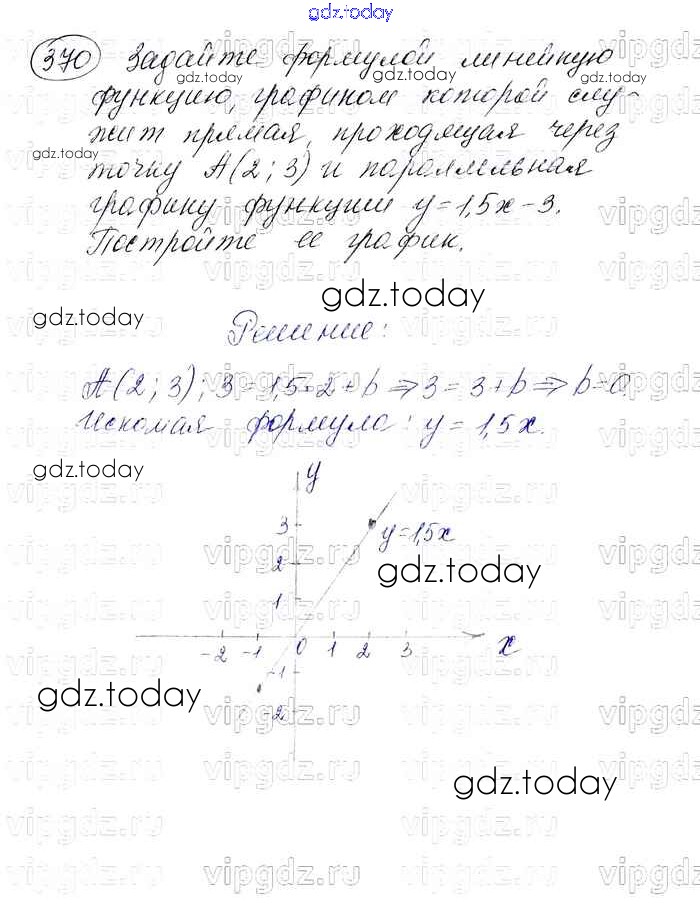 gdz.today
370 Задайте формулой линейную
функцию, графиком которой слу-
жит прямая, проходящая через
точку A(2; 3) и параллельная
графику функции y=1,5x-3.
Постройте ее график.
gdz.today
gdz.today
gdz.today
gdz.today
gdz.today
gdz.today
Решение:
A(2; 3); 3=1,5·2+b ⇒ 3=3+b ⇒ b=0.
Искомая формула: y=1,5x.
gdz.today
y
3
y=1,5x
2
gdz.today
1
-2 -1 0 1 2 3 x
-1
gdz.today
-2
gdz.today
vipgdz.ru